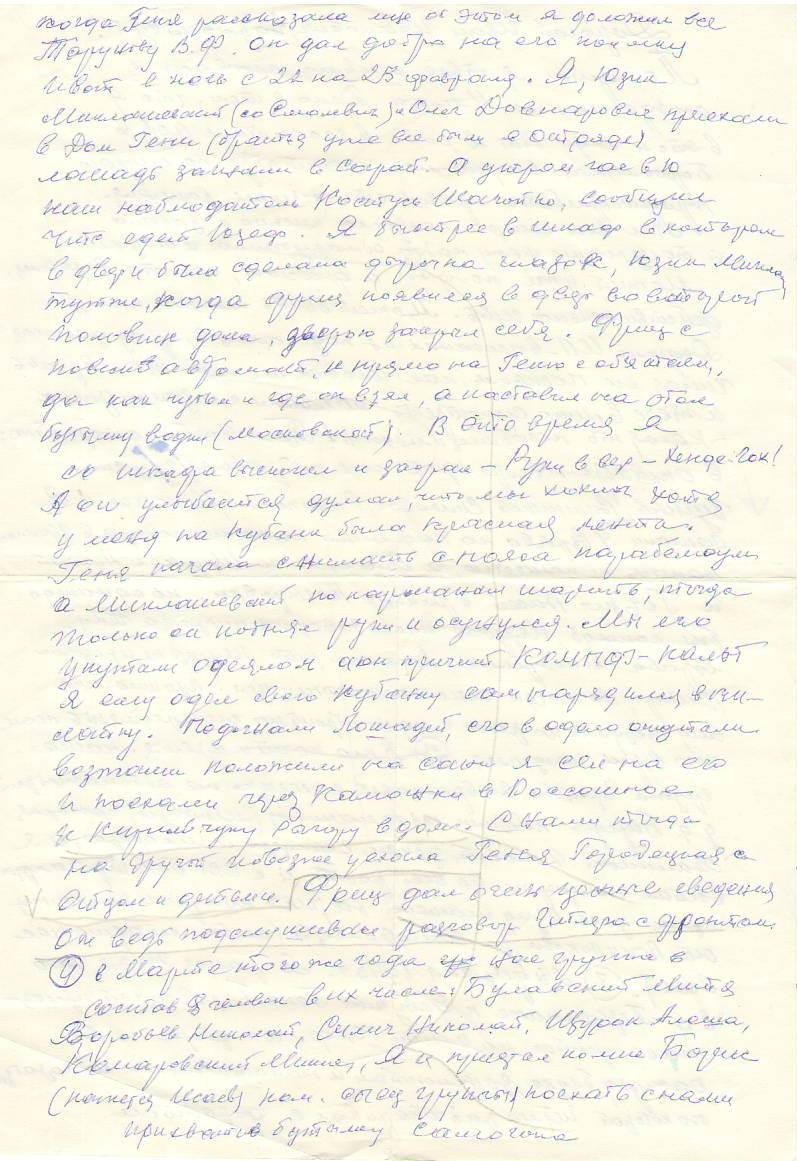 когда Геня рассказала мне об этом я доложил все
Тарунову В.Ф. Он дал добро на его поимку
и вот в ночь с 22 на 23 февраля. Я, Юзик
Миклашевский (со Смолевич) и Олег Довнарович приехали
в Дом Гени (братья уже все были в отряде)
лошадь загнали в сарай. А утром час в 10
наш наблюдатель Костусь Шачытко, сообщил
что едет Юзеф. Я быстрее в шкаф в котором
в двери была сделана дырочка глазок, Юзик Миклаш
тутже, когда фриц появился в двер во второй
половине дома, дверью закрыл себя. Фриц с
повесив автомат, и прямо на Геню с обятиями,
да как чутьи и где он взял, а поставил на стол
бутылку водки (московской). В это время я
со шкафа выскочил и заорал – Руки в вер – Хенде-Гох!
А он улыбается думал, что мы хохмы хотя
у меня на Кубанке была красная лента.
Геня начала снимать с пояса парабелоум
а Миклашевский по карманам шарить, тогда
только он поднял руки и осунулся. Мы его
укутали одеялом а он кричит Комраз – кальт
Я ему одел свою Кубанку сам нарядился в пи-
лотку. Подогнали Лошадей, его в одеяло опутали
возжами положили на сани я сел на его
и поехали через Камошки в Россошное
к Кирильчуку Рыгору в дом. С нами тогда
на другой повозке уехала Геня Городецкая с
Отцом и детьми. Фриц дал очень ценные сведения
он ведь подслушивал разговор Гитлера с фронтом.
4 в Марте того же года наша группа в
составе 8 человек в их числе: Булавский Митя
Воробьев Николай, Силич Николай, Щурок Алеша,
Комаровский Миша, Я и пристал ко мне Борис
(кажется Исаев) ком. группы поехать с нами
прихватив бутылку самогона